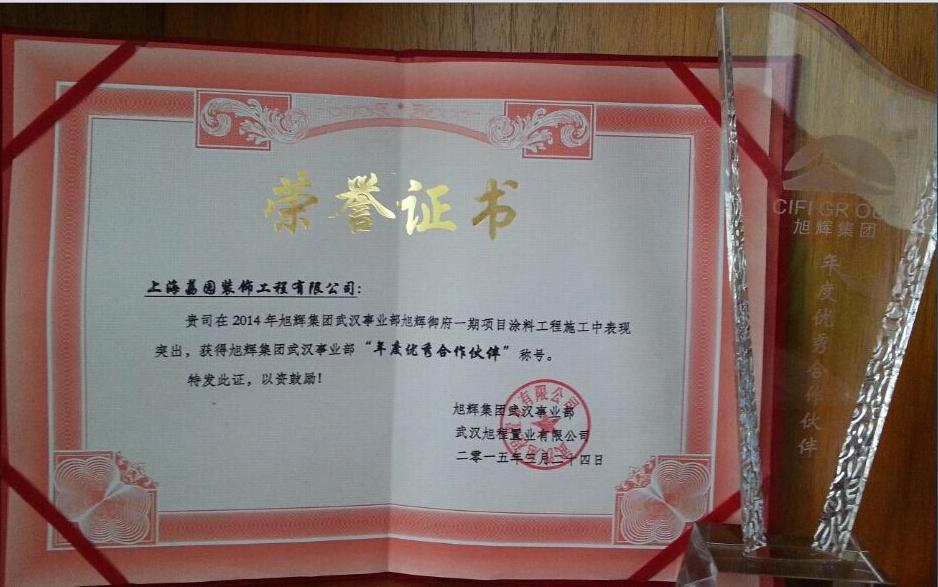 荣誉证书
上海荔园装饰工程有限公司:
贵司在2014年旭辉集团武汉事业部旭辉御府一期项目涂料工程施工中表现
突出，获得旭辉集团武汉事业部“年度优秀合作伙伴”称号。
特发此证，以资鼓励！
旭辉集团武汉事业部
武汉旭程置业有限公司
二零一五年三月二十四日
CIFI GROUP
旭辉集团
年度优秀合作伙伴